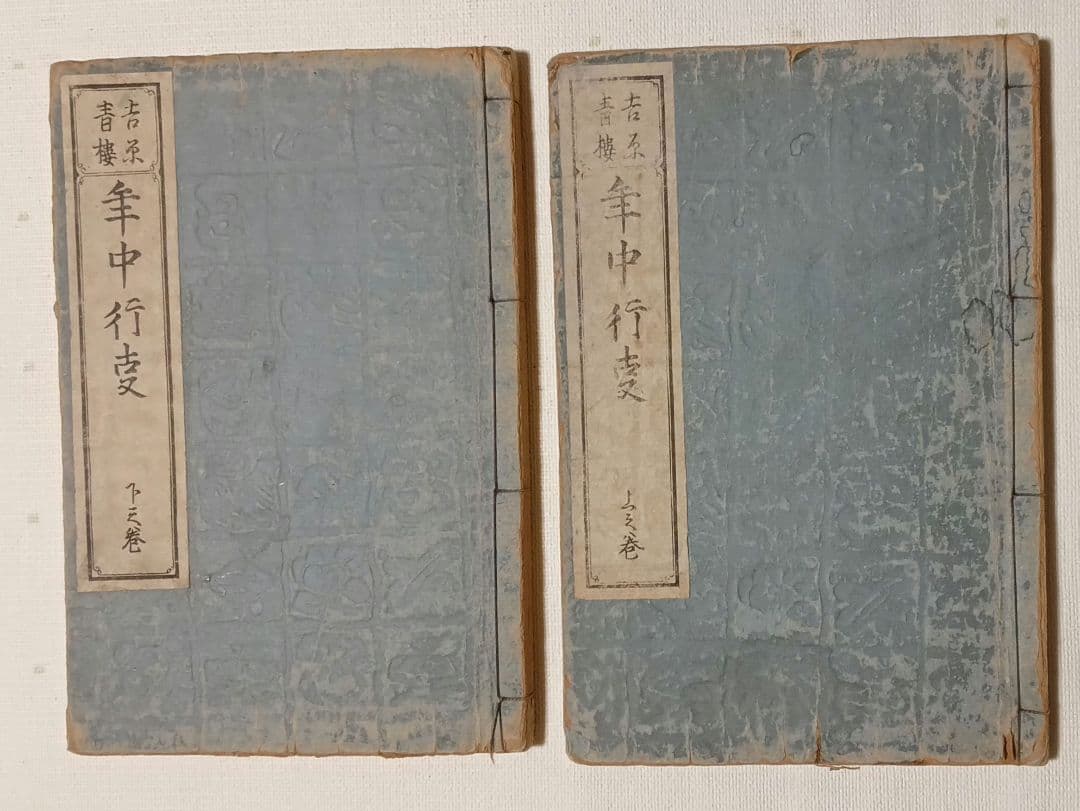 吉原
青樓
年中行㕝
上之巻
吉原
青樓
年中行㕝
下之巻